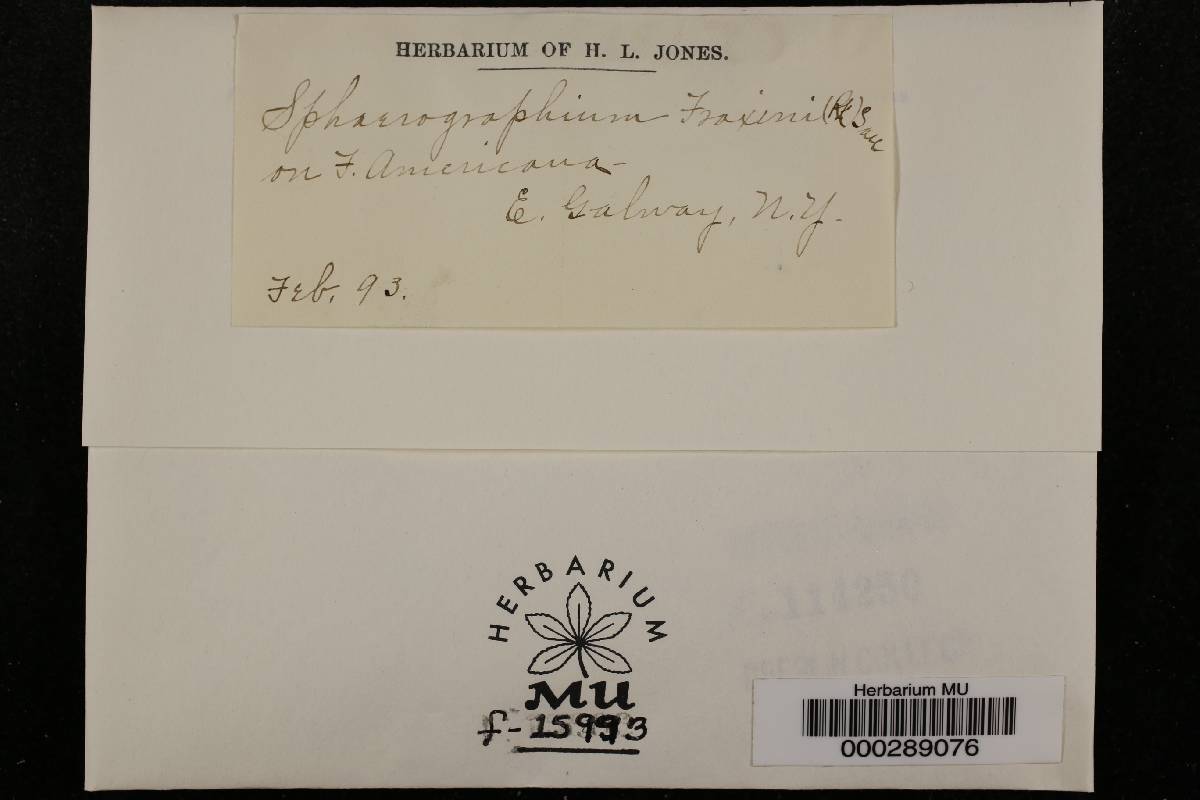 HERBARIUM OF H. L. JONES.
Sphaerographium Fraxini (Pk) Sacc
on F. Americana
E. Galway, N.Y.
Feb. 93.
HERBARIUM
MU
f-15993
Herbarium MU
000289076